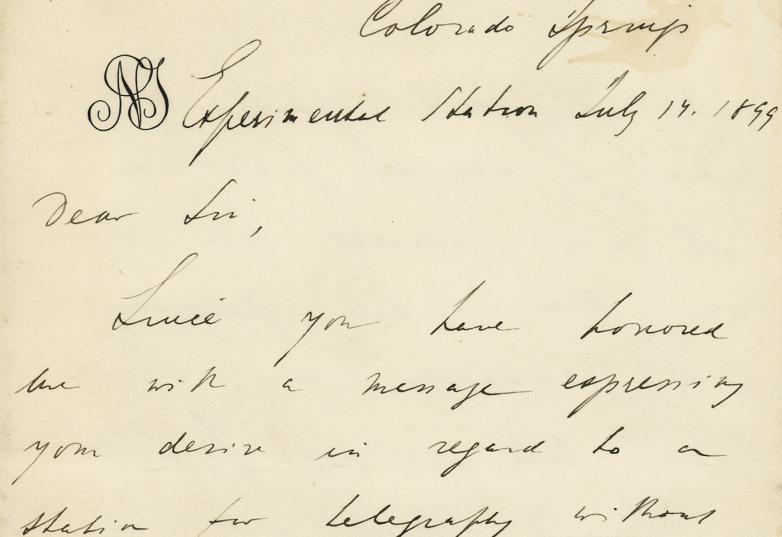 Colorado Springs
NT Experimental Station July 14. 1899
Dear Sir,
Since you have honored
me with a message expressing
your desire in regard to a
station for telegraphy without